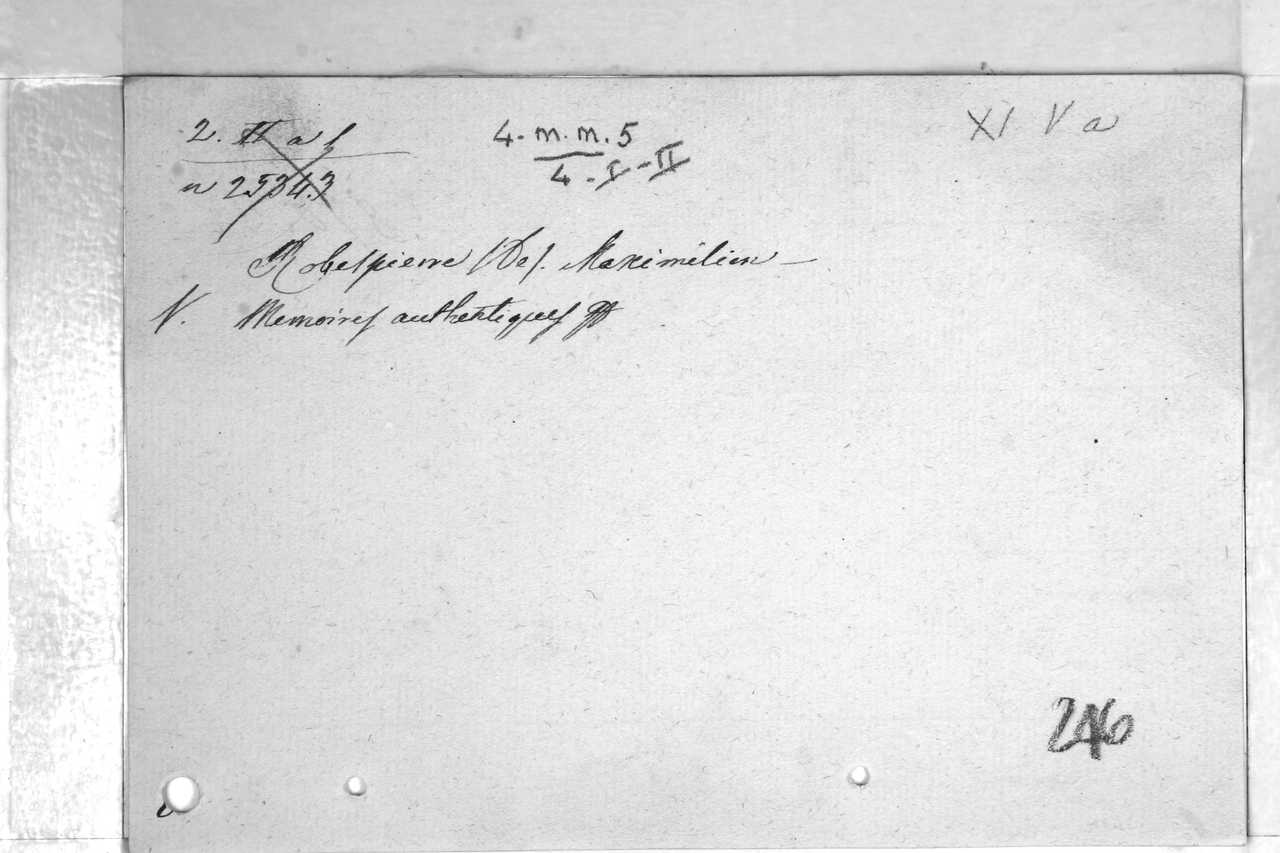 2. II a f
n 25343
4. m. m. 5
4 - I - II
XI V a
Robespierre (De). Maximilien —
V. Memoires authentiques
246